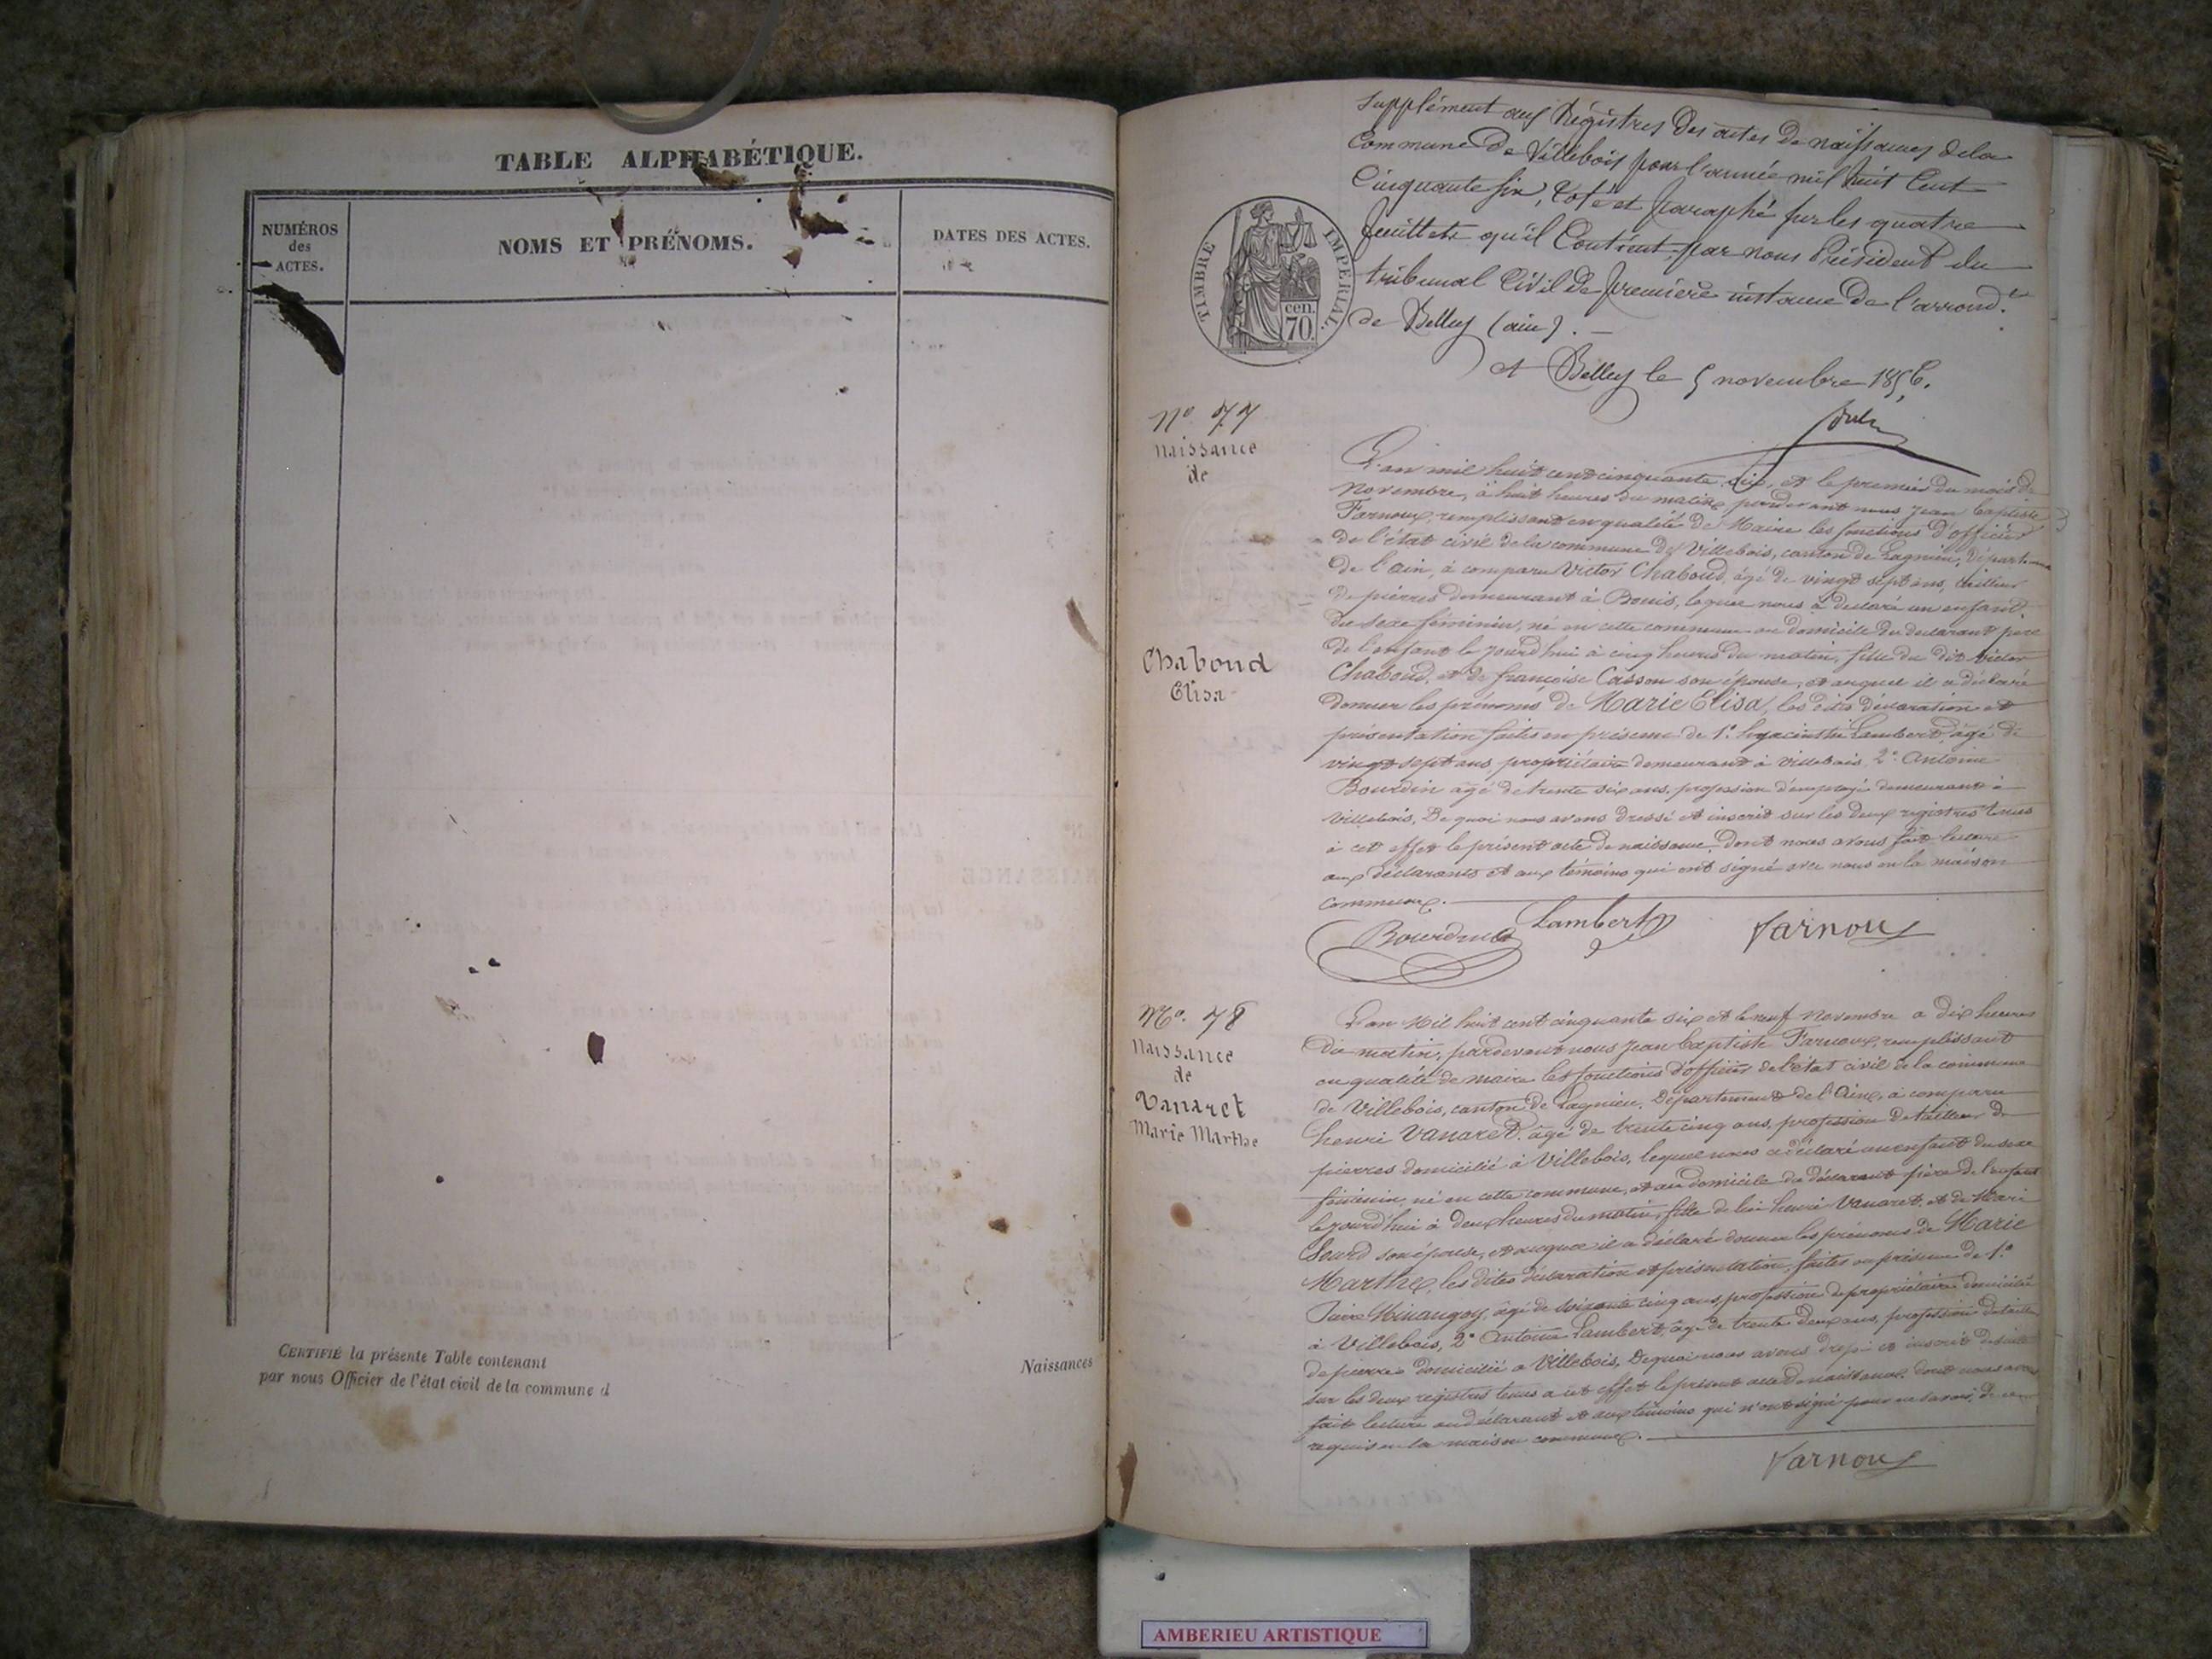 TABLE ALPHABÉTIQUE.
NUMÉROS
des
ACTES.
NOMS ET PRÉNOMS.
DATES DES ACTES.
CERTIFIÉ la présente Table contenant
Naissances
par nous Officier de l'état civil de la commune d
Supplément aux Régistres des actes de naissances de la
Commune de Villebois pour l'année mil huit Cent
Cinquante six, Coté et paraphé sur les quatre
feuillets qu'il Contient, par nous Président du
tribunal Civil de première instance de l'arrond.t
de Belley (ain). —
TIMBRE IMPERIAL.
cen.
70.
A Belley le 5 novembre 1856.
N° 77
Naissance
de
Chaboud
Elisa
L'an mil huit cent cinquante six, et le premier du mois de
Novembre, à huit heures du matin, pardevant nous Jean Baptiste
Farnoux, remplissant en qualité de Maire les fonctions d'officier
de l'état civil de la commune de Villebois, canton de Lagnieu, Département
de l'ain, à comparu Victor Chaboud, âgé de vingt sept ans, tailleur
de pierres demeurant à Bouis, lequel nous à declaré un enfant
du sexe féminin, né en cette commune au domicile du declarant père
de l'enfant le jourd'hui à cinq heures du matin, fille du dit Victor
Chaboud, et de françoise Casson son épouse, et auquel il a déclaré
donner les prénoms de Marie Elisa, les dites déclaration et
présentation faites en présence de 1° hyacinthe Lambert, âgé de
vingt sept ans, propriétaire demeurant à Villebois, 2° Antoine
Bourdin âgé de trente six ans, profession d'employé demeurant à
Villebois, De quoi nous avons dressé et inscrit sur les deux registres tenus
à cet effet le présent acte de naissance, dont nous avons fait lecture
aux déclarants et aux témoins qui ont signé avec nous en la maison
commune.
Bourdin Lambert Farnoux
N°. 78
Naissance
de
Vanaret
Marie Marthe
L'an Mil huit cent cinquante six et le neuf Novembre a dix heures
du matin, pardevant nous Jean Baptiste Farnoux, remplissant
en qualité de maire les fonctions d'officier de l'état civil de la commune
de Villebois, canton de Lagnieu, Département de l'Ain, à comparu
henri Vanaret, âgé de trente cinq ans, profession de tailleur de
pierres domicilié à Villebois, lequel nous a déclaré un enfant du sexe
féminin, né en cette commune, et au domicile du déclarant père de l'enfant
le jourd'hui à deux heures du matin, fille de lui henri Vanaret, et de Marie
Sourd son épouse, et auquel il a déclaré donner les prénoms de Marie
Marthe, les dites déclaration et présentation, faites en présence de 1°
âgé de soixante cinq ans, profession de propriétaire domicilié
à Villebois, 2° Antoine Lambert, âgé de trente deux ans, profession de tailleur
de pierres domicilié a Villebois, De quoi nous avons dressé et inscrit de suite
sur les deux registres tenus a cet effet le présent acte de naissance, dont nous avons
fait lecture au déclarant et aux témoins qui n'ont signé pour ne savoir, de ce
requis en la maison commune.
Farnoux
AMBERIEU ARTISTIQUE